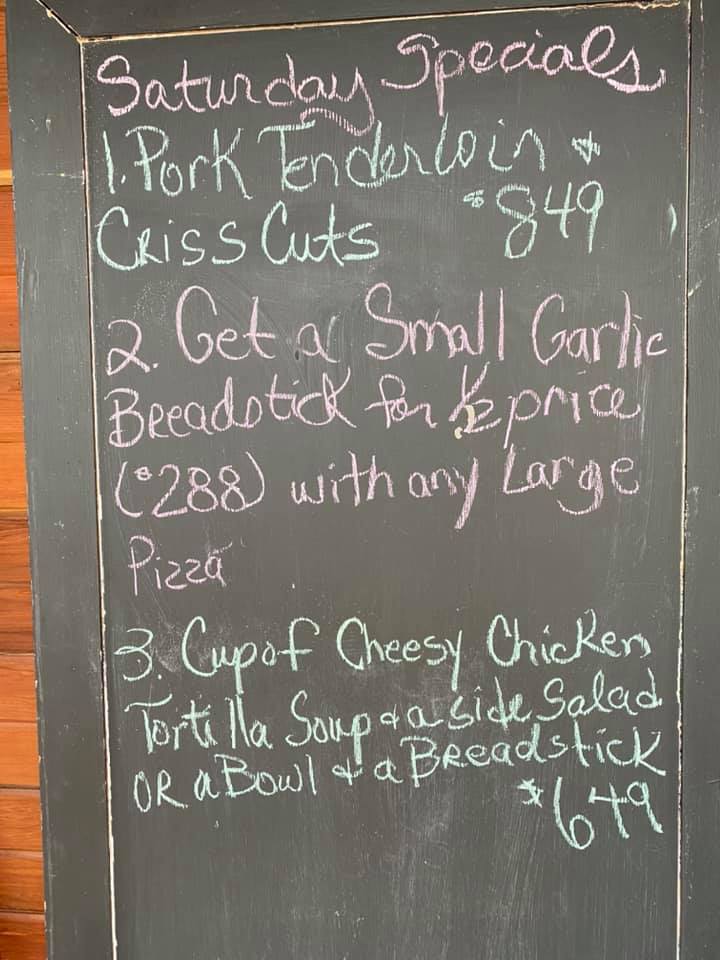 Saturday Specials
1. Pork Tenderloin &
Criss Cuts $849
2. Get a Small Garlic
Breadstick for 1/2 price
($288) with any Large
Pizza
3. Cup of Cheesy Chicken
Tortilla Soup & a side Salad
OR a Bowl & a Breadstick
$649